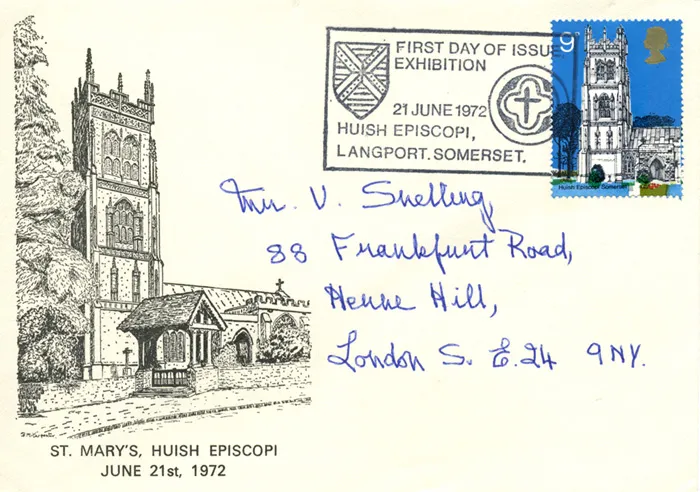 FIRST DAY OF ISSUE
EXHIBITION
21 JUNE 1972
HUISH EPISCOPI,
LANGPORT. SOMERSET.
9
Huish Episcopi Somerset
V. Snelling,
88 Frankfurt Road,
Herne Hill,
London S. E.24 9NY.
ST. MARY'S, HUISH EPISCOPI
JUNE 21st, 1972